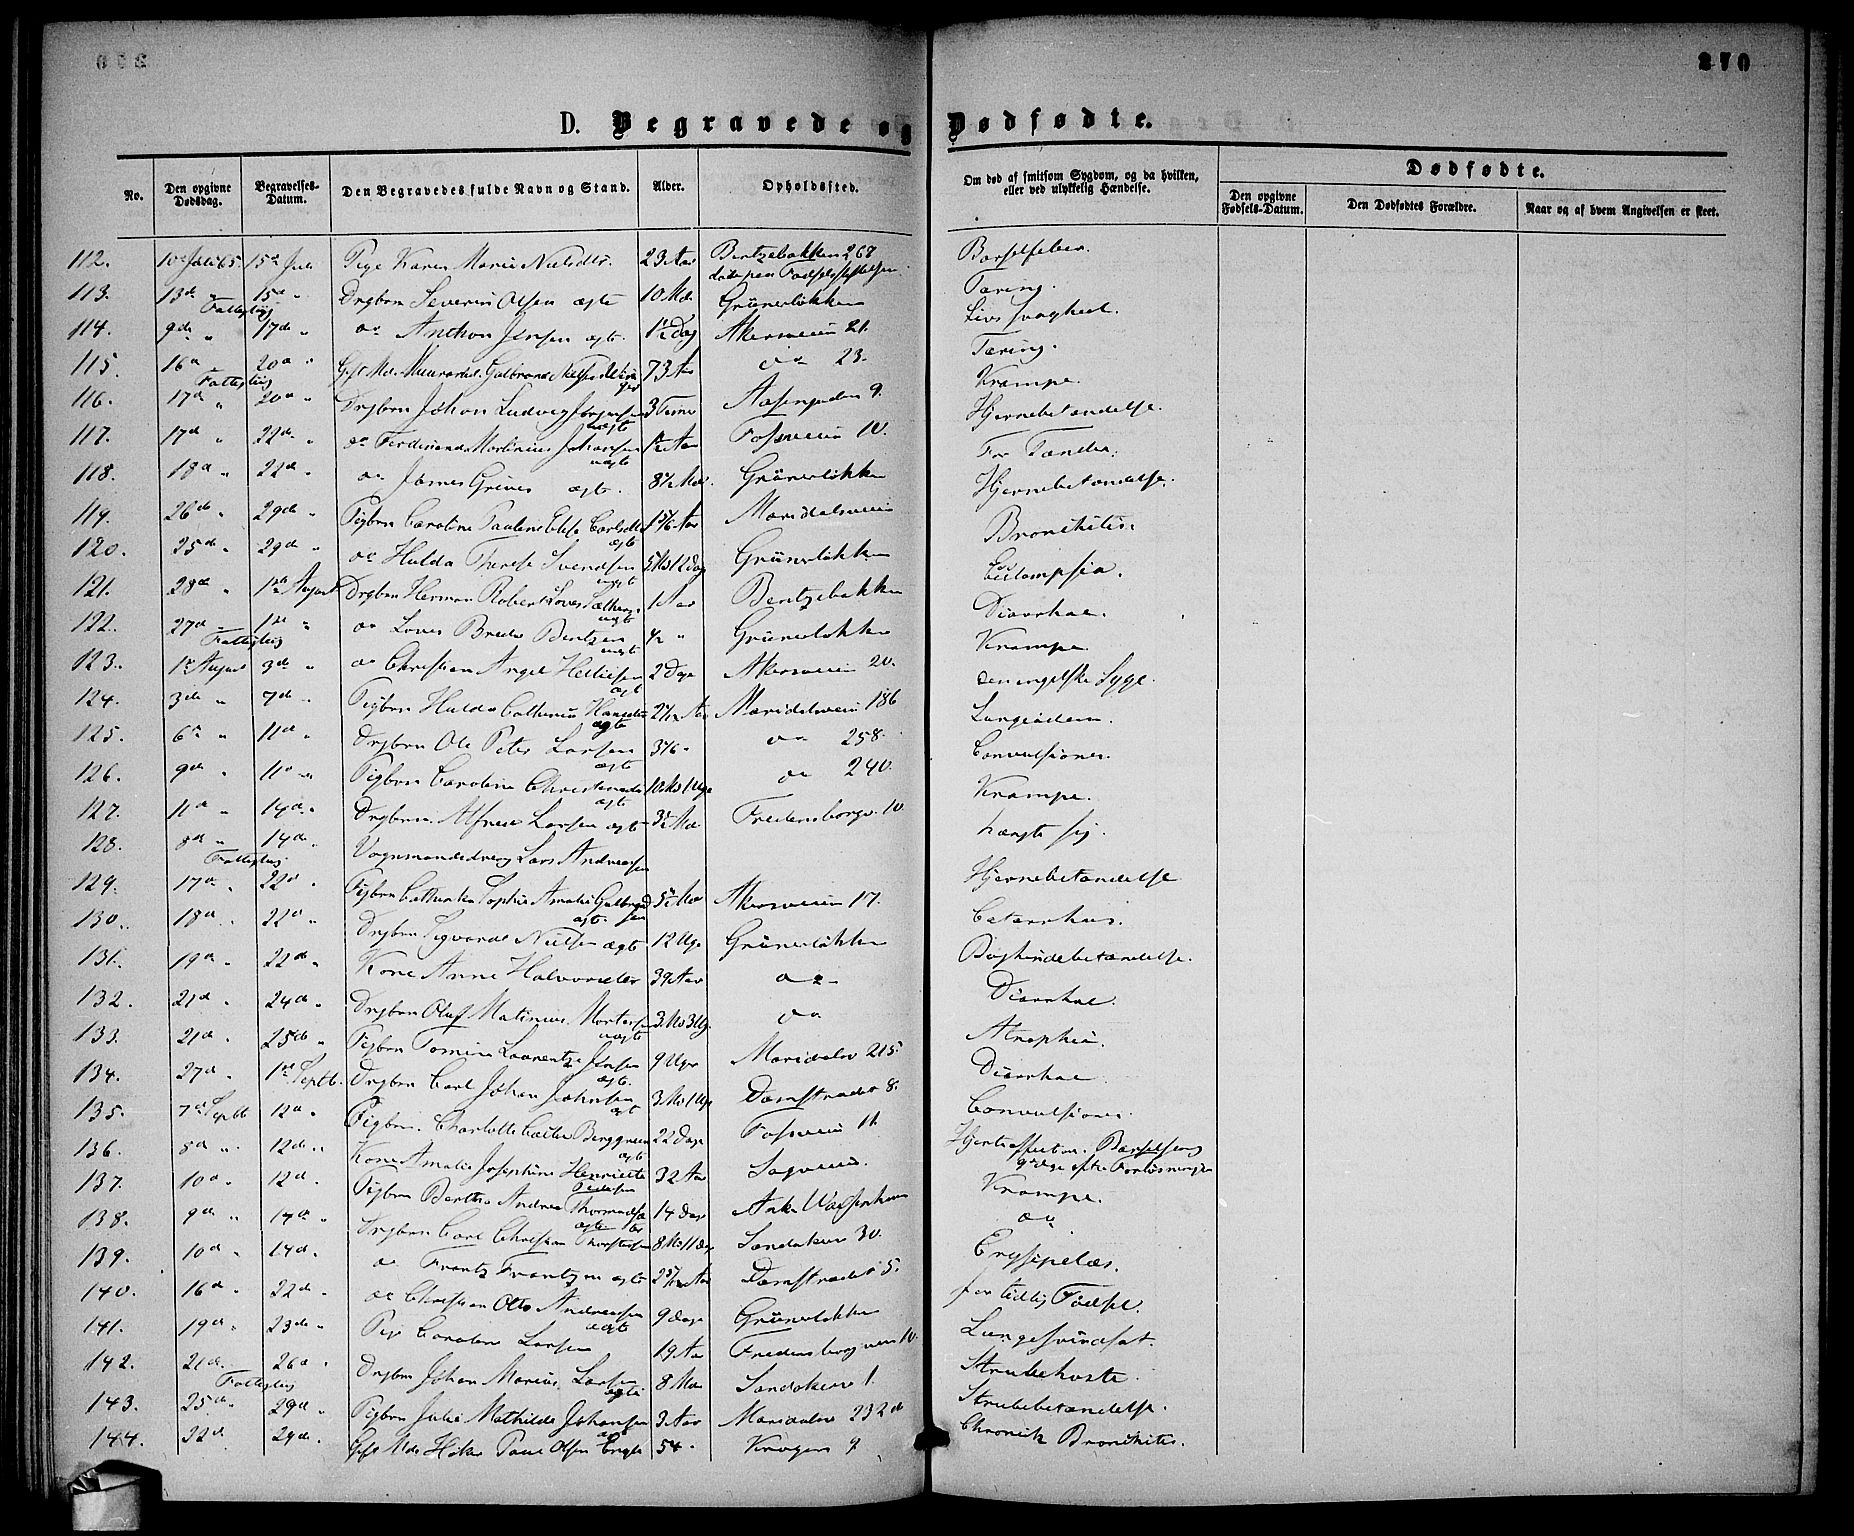 270
D. Begravede og Dødfødte.
No. Den opgivne Dødsdag. Begravelses-Datum. Den Begravedes fulde Navn og Stand. Alder. Opholdssted. Om død af smitsom Sygdom, og da hvilken, eller ved ulykkelig Hændelse. Dødfødte.
Den opgivne Fødsels-Datum. Den Dødfødtes Forældre. Naar og af hvem Angivelsen er skeet.
112. 10de Juli 65. 15de Juli Pige Karen Marie Nielsdtr. 23 Aar Bentzebakken 268 Barselfeber.
døde paa Fødselsstiftelsen
113. 13de " 15de " Drgbrn Severin Olsen ægte 10 Md. Grünerløkken Tæring.
Fattiglig
114. 9de " 17de " do Anthon Jensen ægte 1½ Dag Akersveien 21. Livs svaghed.
115. 16de 20de " Gift Md. Murarbd. Gulbrand 73 Aar do 23. Tæring.
Fattiglig
116. 17de " 20de " Drgbrn Johan Ludvig Jørgensen 3 Timer Aasengaden 9. Krampe.
uægte
117. 17de " 22de " do Ferdinand Martinius Johansen 1½ Aar Fossveien 10. Hjernebetændelse.
uægte
118. 18de " 22de do James Greves ægte. 8½ Md. Grünerløkken For Tænder.
119. 26de " 29de " Pigbrn Caroline Pauline Elise Carlsdtr 1 5/6 Aar Maridalsveien Hjernebetændelse.
ægte
120. 25de " 29de " do Hulda Therese Svendsen 5 Md 12 Dag Grünerløkken Bronkitis.
uægte
121. 28de " 1ste August Drgbrn Herman Robert 1 Aar Bentzebakken Eclampsia.
uægte
122. 27de " 1ste " do Lovis Brede Bentzen ½ " Grünerløkken Diarrhae.
Fattiglig uægte
123. 1ste August 3de " do Christian Angel Helliesen 2 Dage Akersveien 20. Krampe.
ægte
124. 3de " 7de " Pigbrn Hulda Cathrine Hansdtr Aar Maridalsveien 186 den engelske Syge.
ægte
125. 6te " 11de " Drgbrn Ole Peter Larsen 3/6 " do 258. Lungeødem.
ægte
126. 9de " 11de " Pigbrn Caroline 10 Md 1 Uge do 240. Convulsioner.
ægte
127. 11de " 14de " Drgbrn. Alfred Larsen ægte 3½ Md. Fredensborgv. 10 Krampe.
128. 8de " 14de " Vognmandsdreng Lars Andreassen hængte sig.
Fattiglig
129. 17de " 22de " Pigbrn Cathinka Sophie Amalie Gulbrandsen 5½ Md Akersveien 17. Hjernebetændelse
ægte
130. 18de " 22de " Drgbrn Sigvard Nielsen ægte 12 Uge Grünerløkken Catarrhus.
131. 19de " 22de " Kone Anne Halvorsdtr 39 Aar do Bughindebetændelse.
132. 21de " 24de " Drgbrn Oluf Matinius Mortensen 3 Md 3 Ug. do Diarrhae.
uægte
133. 21de " 25de " Pigbrn Tomine Laurentze Jensen 9 Uger Maridalsv 215. Atrophia.
ægte
134. 27de " 1ste Septb. Drgbrn Carl Johan Johnsen 3 Md 1 Uge Damstrædet 8. Diarrhae.
ægt
135. 7de Septb 12de " Pigbrn. Charlotte Berggreen 22 Dage Fossveien 11. Convulsioner.
ægte
136. 8de " 12de " Kone Amalie Josephine Henriette Pedersen 32 Aar Sagveien. Hjerte affection. Barselseng
Dage efter Forløsningen
137. 10de " 12de " Pigbrn Berthe Andrea 14 Dage Krampe.
ægte
138. 9de " 14de " Drgbrn Carl Christian Thorstensen 8 Md 11 Dage Sandakerv 30. do
139. 10de " 14de " do Frantz Frantzen ægte Aar Damstrædet 5. Erysipelas.
140. 16de " 22de " do Christian Otto Andreassen 9 Dage Grünerløkken for tidlig Fødsel.
uægte
141. 19de " 23de " Pige Caroline Larsen 19 Aar Fredensborgveien 10. Lungesvindsot.
142. 21de 26de " Drgbrn Johan Marius Larsen 8 Md Sandakerv 1. Strubehoste.
Fattiglig ægte
143. 25de " 29de " Pigbrn Julie Mathilde Johansen 3 Aar Maridalsv 232 d Strubebetændelse.
ægte
144. 22de 29de " Gift Md. Høker Paul Olsen Engh 54 " Krogen 9 Chronisk Bronkitis.